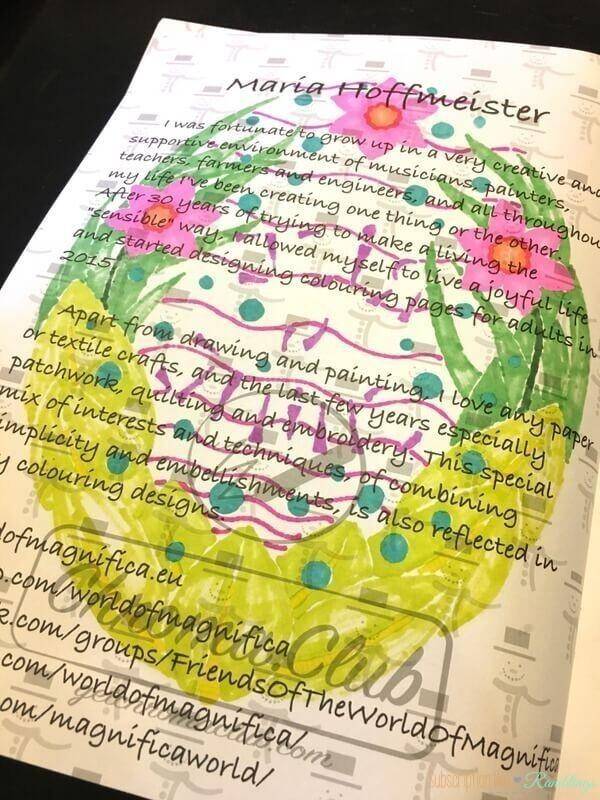 Maria Hoffmeister
I was fortunate to grow up in a very creative and
supportive environment of musicians, painters,
teachers, farmers and engineers, and all throughou
my life I've been creating one thing or the other.
After 30 years of trying to make a living the
"sensible" way, I allowed myself to live a joyful life
and started designing colouring pages for adults in
2015.
Apart from drawing and painting, I love any paper
or textile crafts, and the last few years especially
patchwork, quilting and embroidery. This special
mix of interests and techniques, of combining
implicity and embellishments, is also reflected in
y colouring designs.
dofmagnifica.eu
.com/worldofmagnifica
k.com/groups/FriendsOfTheWorldOfMagnifica
com/worldofmagnifica/
om/magnificaworld/
Club
Ramblings